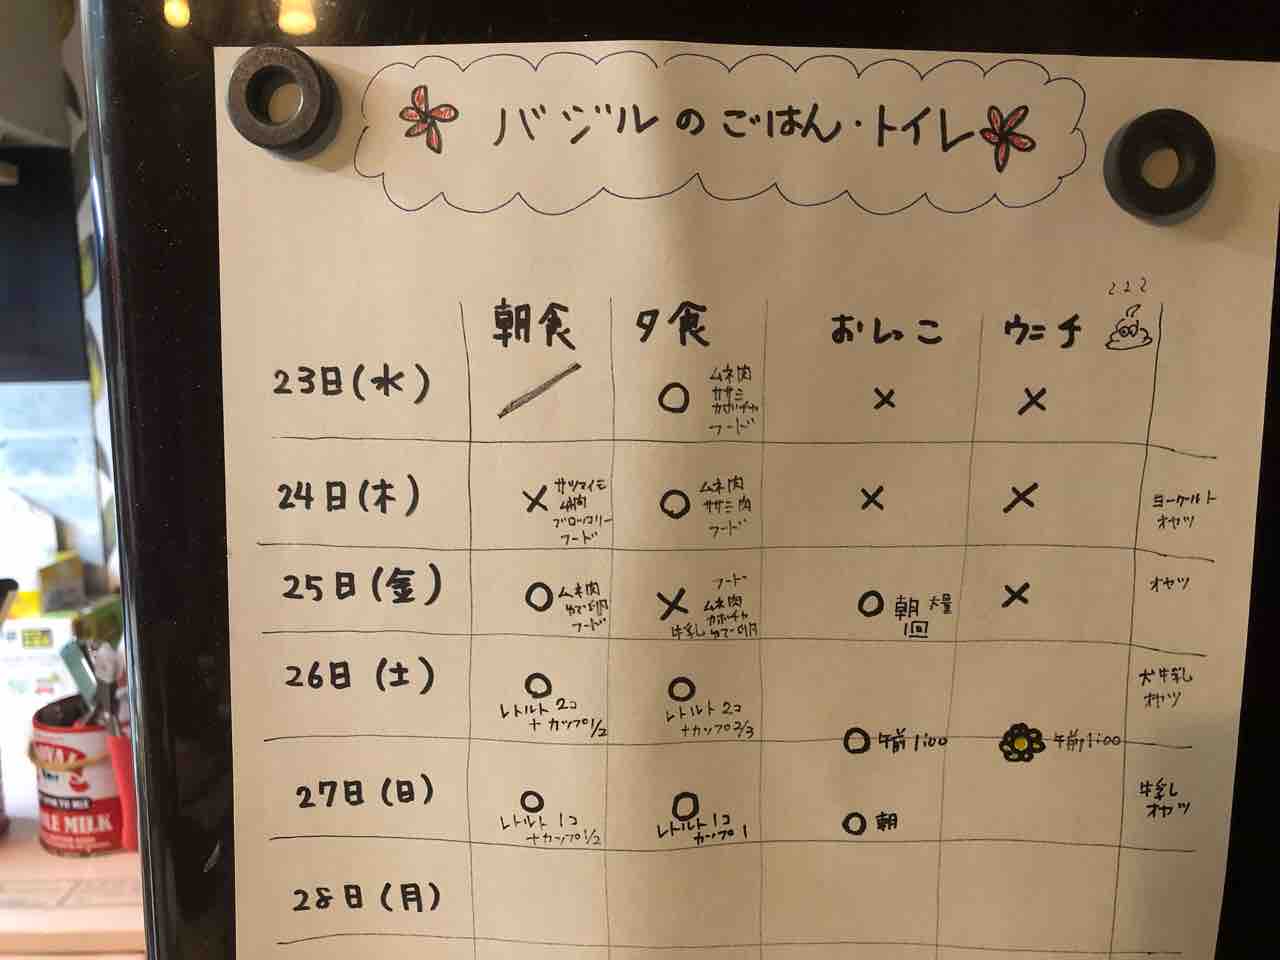 バジルのごはん・トイレ
朝食 夕食 おしっこ ウンチ
23日(水) ／ ○ ムネ肉 × ×
ササミ
カボチャ
フード
24日(木) × サツマイモ ○ ムネ肉 × ×  ヨーグルト
ササミ肉 オヤツ
ブロッコリー フード
フード
25日(金) ○ ムネ肉 × フード ○ 朝 大量 × オヤツ
ゆで卵 ムネ肉 1回
フード カボチャ
牛乳 ゆで卵
26日(土) ○ ○ 犬牛乳
レトルト 2コ レトルト 2コ オヤツ
+カップ1/2 +カップ2/3
○ 午前1:00 午前1:00
27日(日) ○ ○ 牛乳
レトルト 1コ レトルト 1コ ○ 朝 オヤツ
+カップ1/2 カップ1
28日(月)
MILK